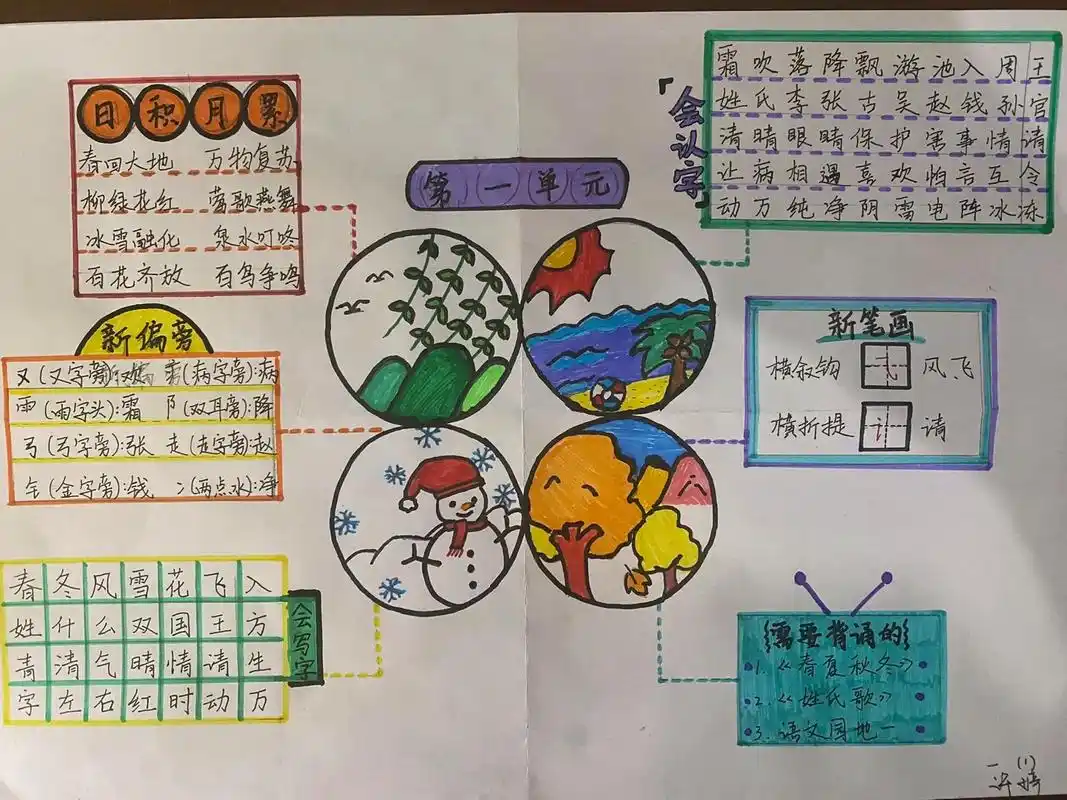 第一单元
日积月累
春回大地 万物复苏
柳绿花红 莺歌燕舞
冰雪融化 泉水叮咚
百花齐放 百鸟争鸣
新偏旁
又(又字旁): (病字旁):病
雨(雨字头):霜 阝(双耳旁):降
弓(弓字旁):张 走(走字旁):赵
钅(金字旁):钱 冫(两点水):净
春冬风雪花飞入
姓什么双国王方
青清气晴情请生
字左右红时动万
会写字
「会认字」
霜吹落降飘游池入周王
姓氏李张古吴赵钱孙官
清晴眼睛保护害事情请
让病相遇喜欢怕言互令
动万纯净阴雷电阵冰冻
新笔画
横斜钩 ⺄ 风飞
横折提 讠 请
需要背诵的
1.《春夏秋冬》
2.《姓氏歌》
3.语文园地一
一(1)